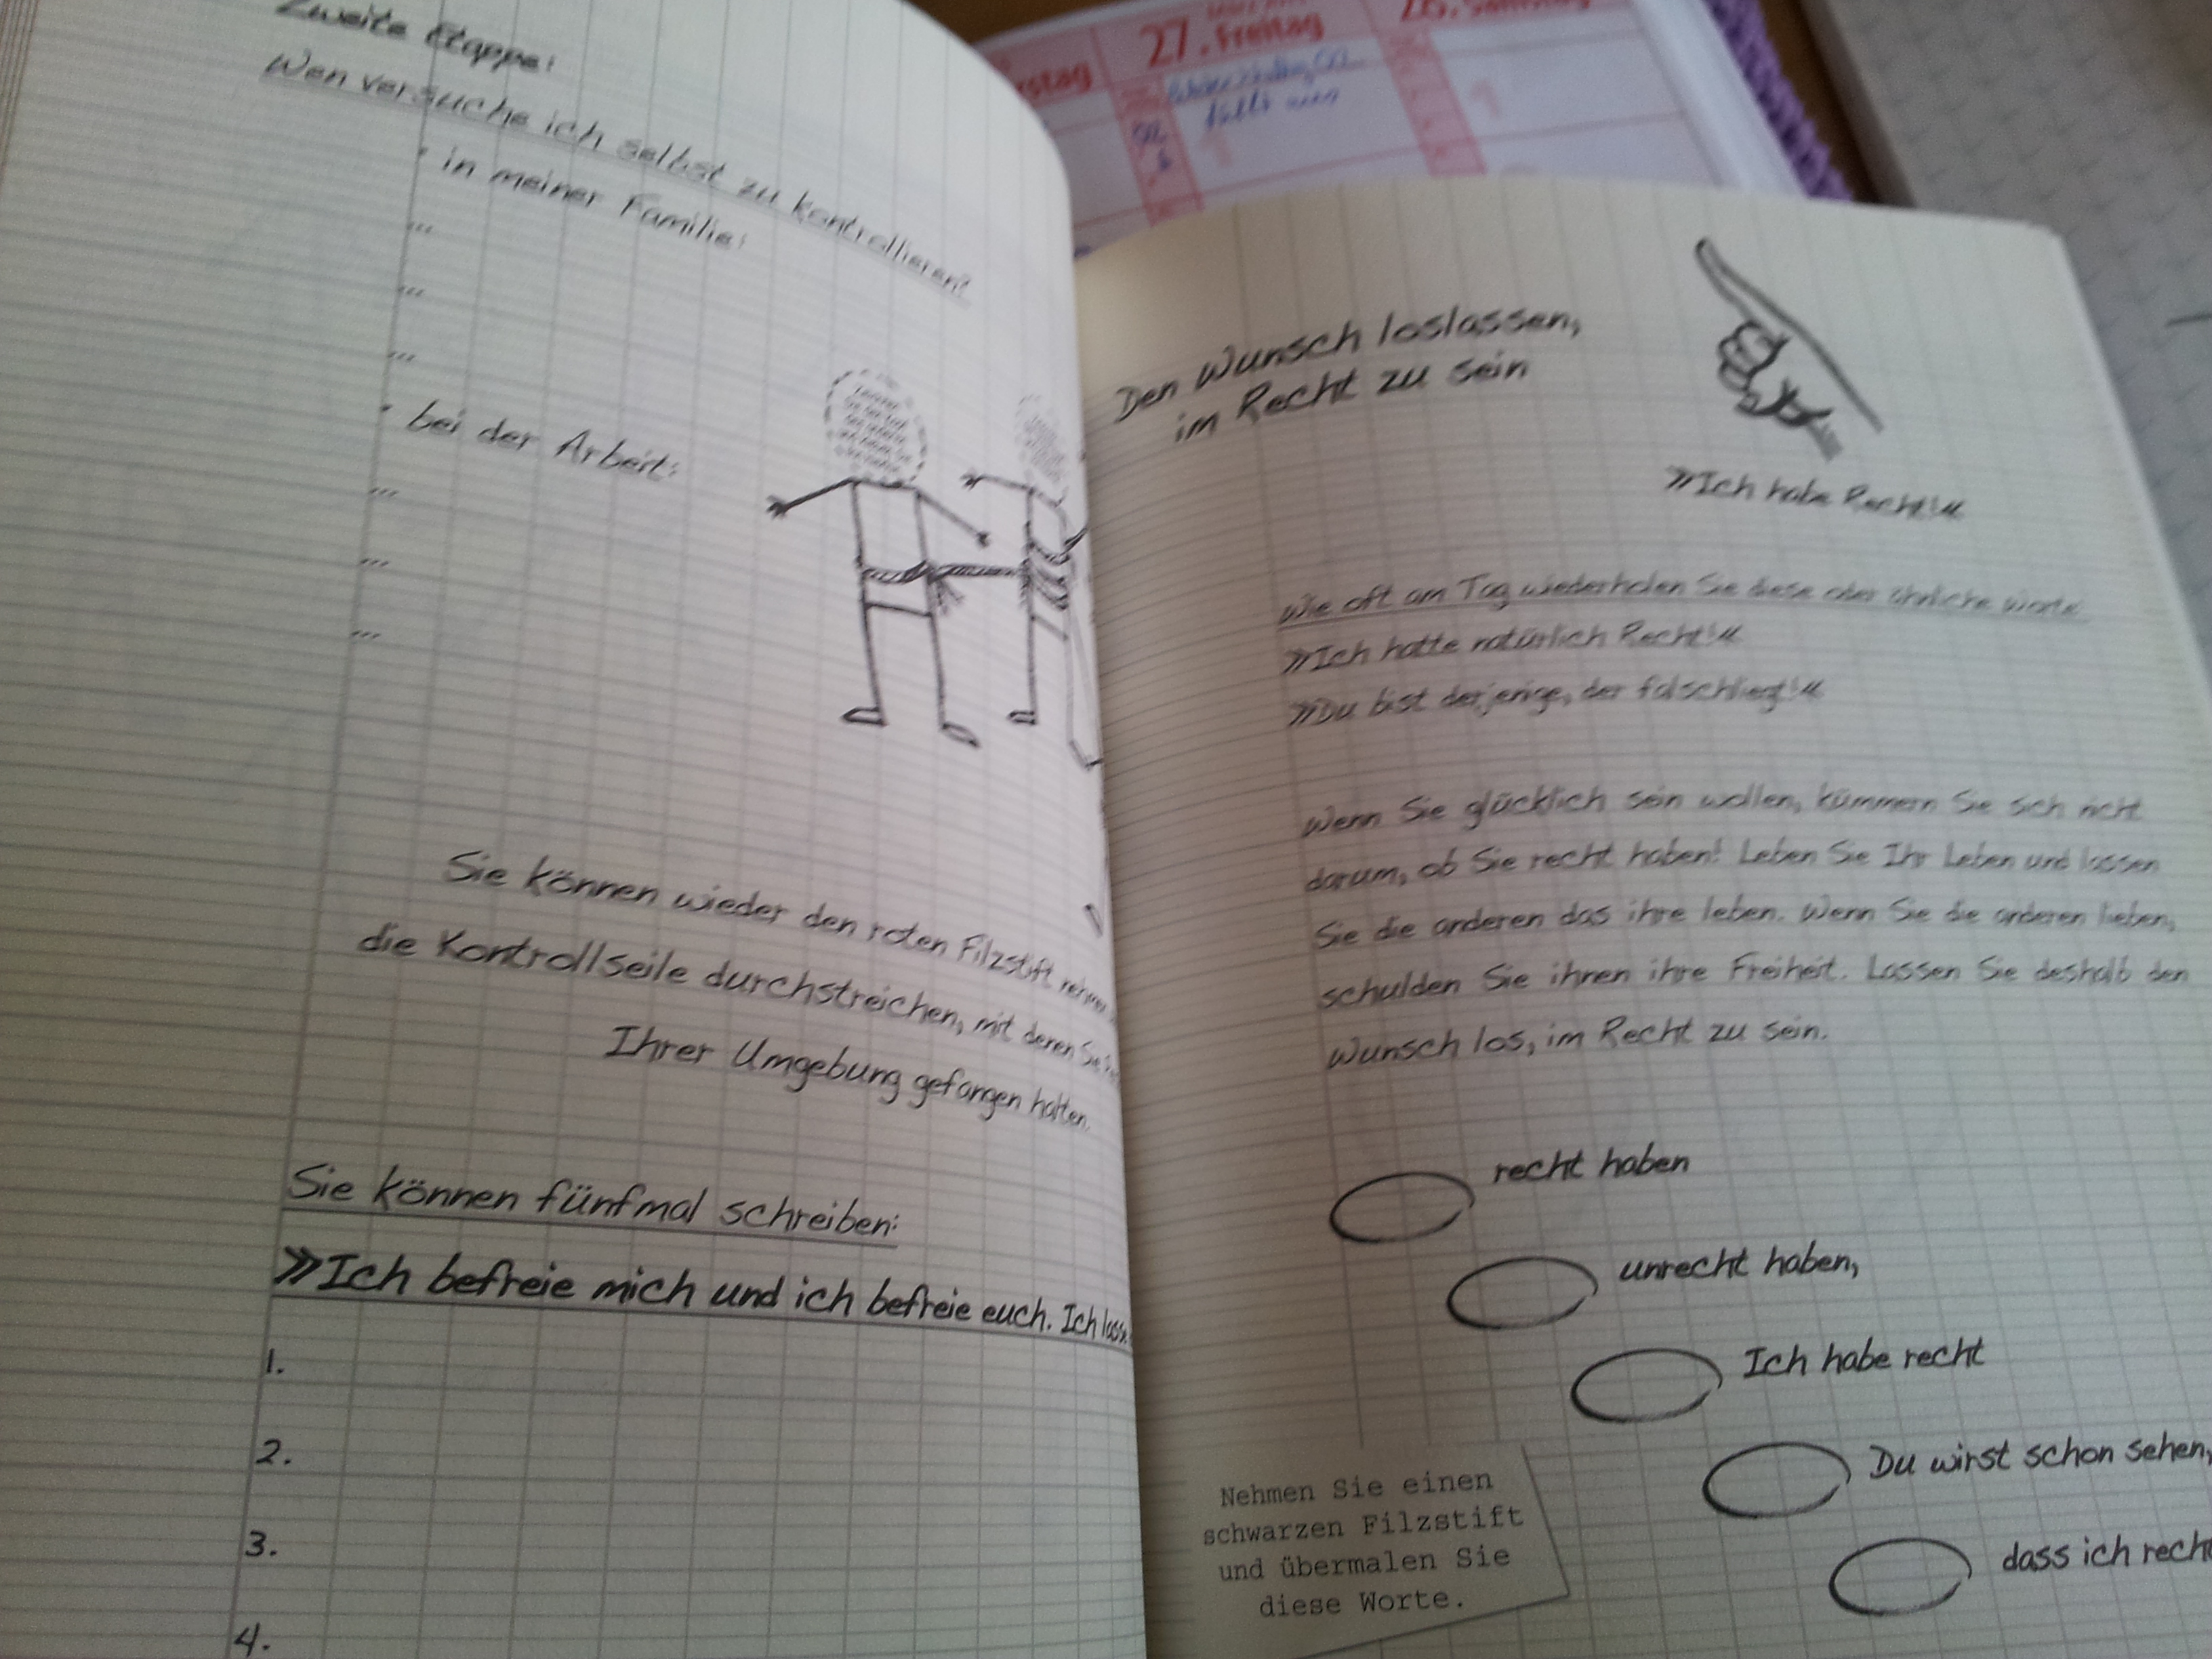 Zweite Etappe:
Wen versuche ich selbst zu kontrollieren?
• in meiner Familie:
...
...
...
• bei der Arbeit:
...
...
...
Sie können wieder den roten Filzstift nehmen
die Kontrollseile durchstreichen, mit deren Sie
Ihrer Umgebung gefangen halten.
Sie können fünfmal schreiben:
»Ich befreie mich und ich befreie euch. Ich lasse
1.
2.
3.
4.
27. Freitag
28. Samstag
fällt aus
Den Wunsch loslassen,
im Recht zu sein
»Ich habe Recht!«
Wie oft am Tag wiederholen Sie diese oder ähnliche Worte
»Ich hatte natürlich Recht!«
»Du bist derjenige, der falschliegt!«
Wenn Sie glücklich sein wollen, kümmern Sie sich nicht
darum, ob Sie recht haben! Leben Sie Ihr Leben und lassen
Sie die anderen das ihre leben. Wenn Sie die anderen lieben,
schulden Sie ihnen ihre Freiheit. Lassen Sie deshalb den
Wunsch los, im Recht zu sein.
recht haben
unrecht haben,
Ich habe recht
Du wirst schon sehen,
dass ich recht
Nehmen Sie einen
schwarzen Filzstift
und übermalen Sie
diese Worte.